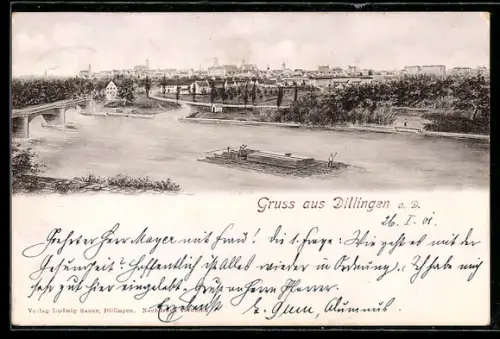 Gruss aus Dillingen a. D.
26. I. 01.
Geehrter Herr Mayer mit Frau! Die 1. Frage: Wie geht es mit der
Gesundheit? Hoffentlich ist Alles wieder in Ordnung. Ich habe mich
sehr gut hier eingelebt. Gruß an Herrn Pfarrer.
Ergebenst Alumnus.
Verlag Ludwig Sauer, Dillingen.